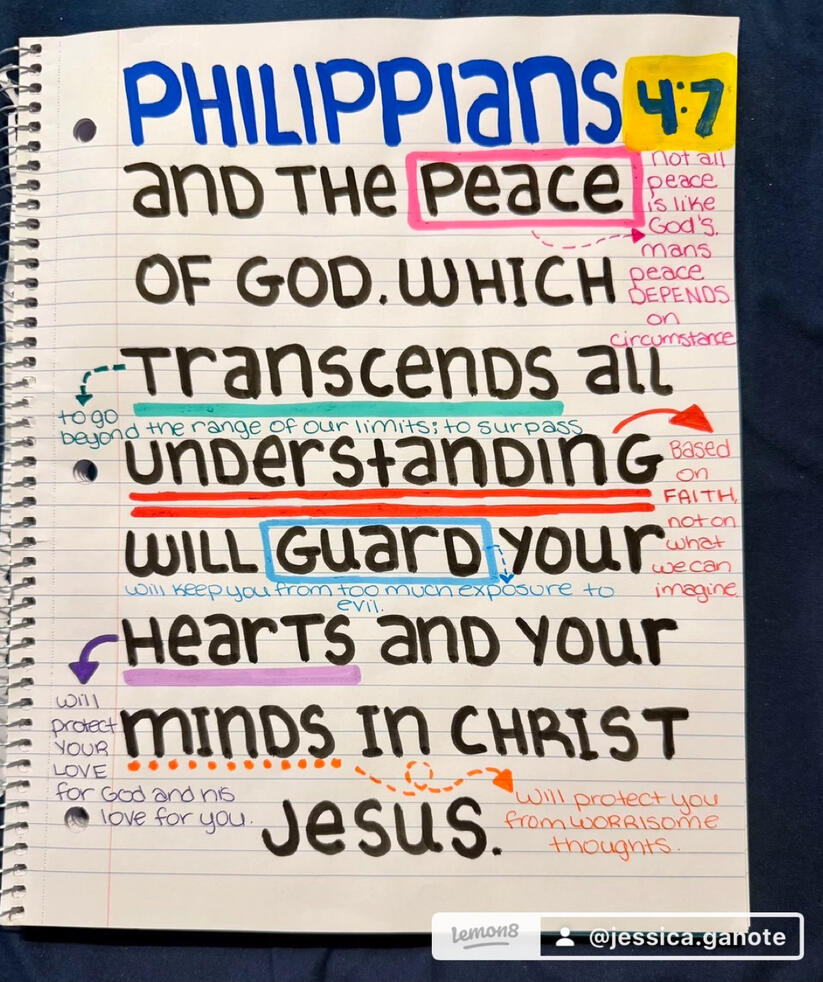 PHILIPPIans 4:7
and THe Peace
not all
peace
is like
God's.
mans
peace
DEPENDS
on
circumstance
OF GOD. WHICH
Transcends all
to go
beyond the range of our limits; to surpass
understanding
Based
on
FAITH,
not on
what
we can
imagine.
WILL Guard your
will keep you from too much exposure to
evil.
Hearts and your
will
protect
YOUR
LOVE
for God and his
love for you.
minds in CHRIST
Will protect you
from WORRISOME
thoughts.
Jesus.
lemon8 @jessica.ganote